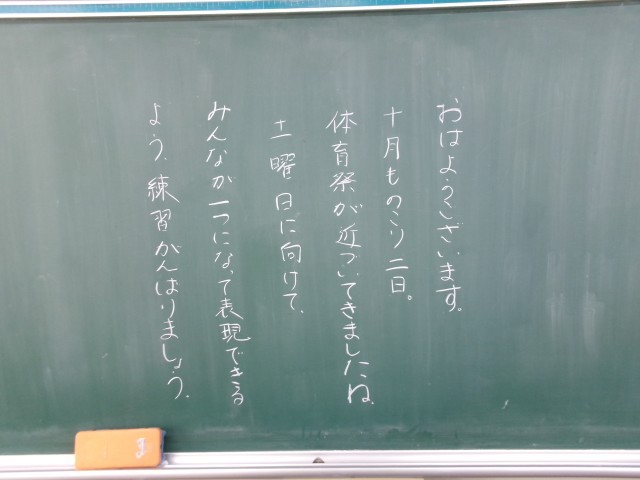 おはようございます。
十月ものこり二日。
体育祭が近づいてきましたね。
土曜日に向けて、
みんなが一つになって表現できる
よう、練習がんばりましょう。
ま